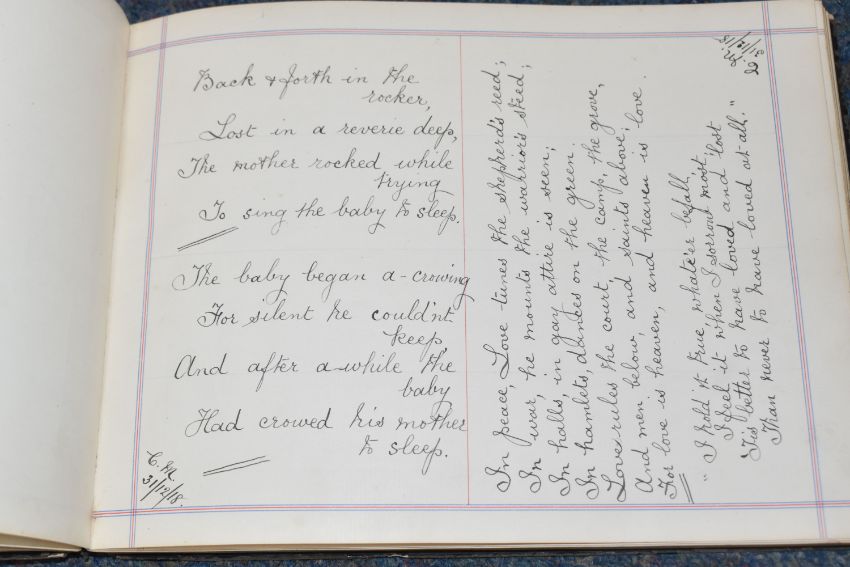 Back & forth in the
rocker,
Lost in a reverie deep,
The mother rocked while
trying
To sing the baby to sleep.
The baby began a-crowing
For silent he could'nt
keep,
And after a-while the
baby
Had crowed his mother
to sleep.
C. M.
31/12/18.
In peace, Love tunes the shepherd's reed;
In war, he mounts the warrior's steed;
In halls, in gay attire is seen;
In hamlets, dances on the green.
Love rules the court, the camp, the grove,
And men below, and saints above;
For love is heaven, and heaven is love.
"I hold it true, whate'er befall,
I feel it when I sorrow most,
'Tis better to have loved and lost
Than never to have loved at all."
31/12/18